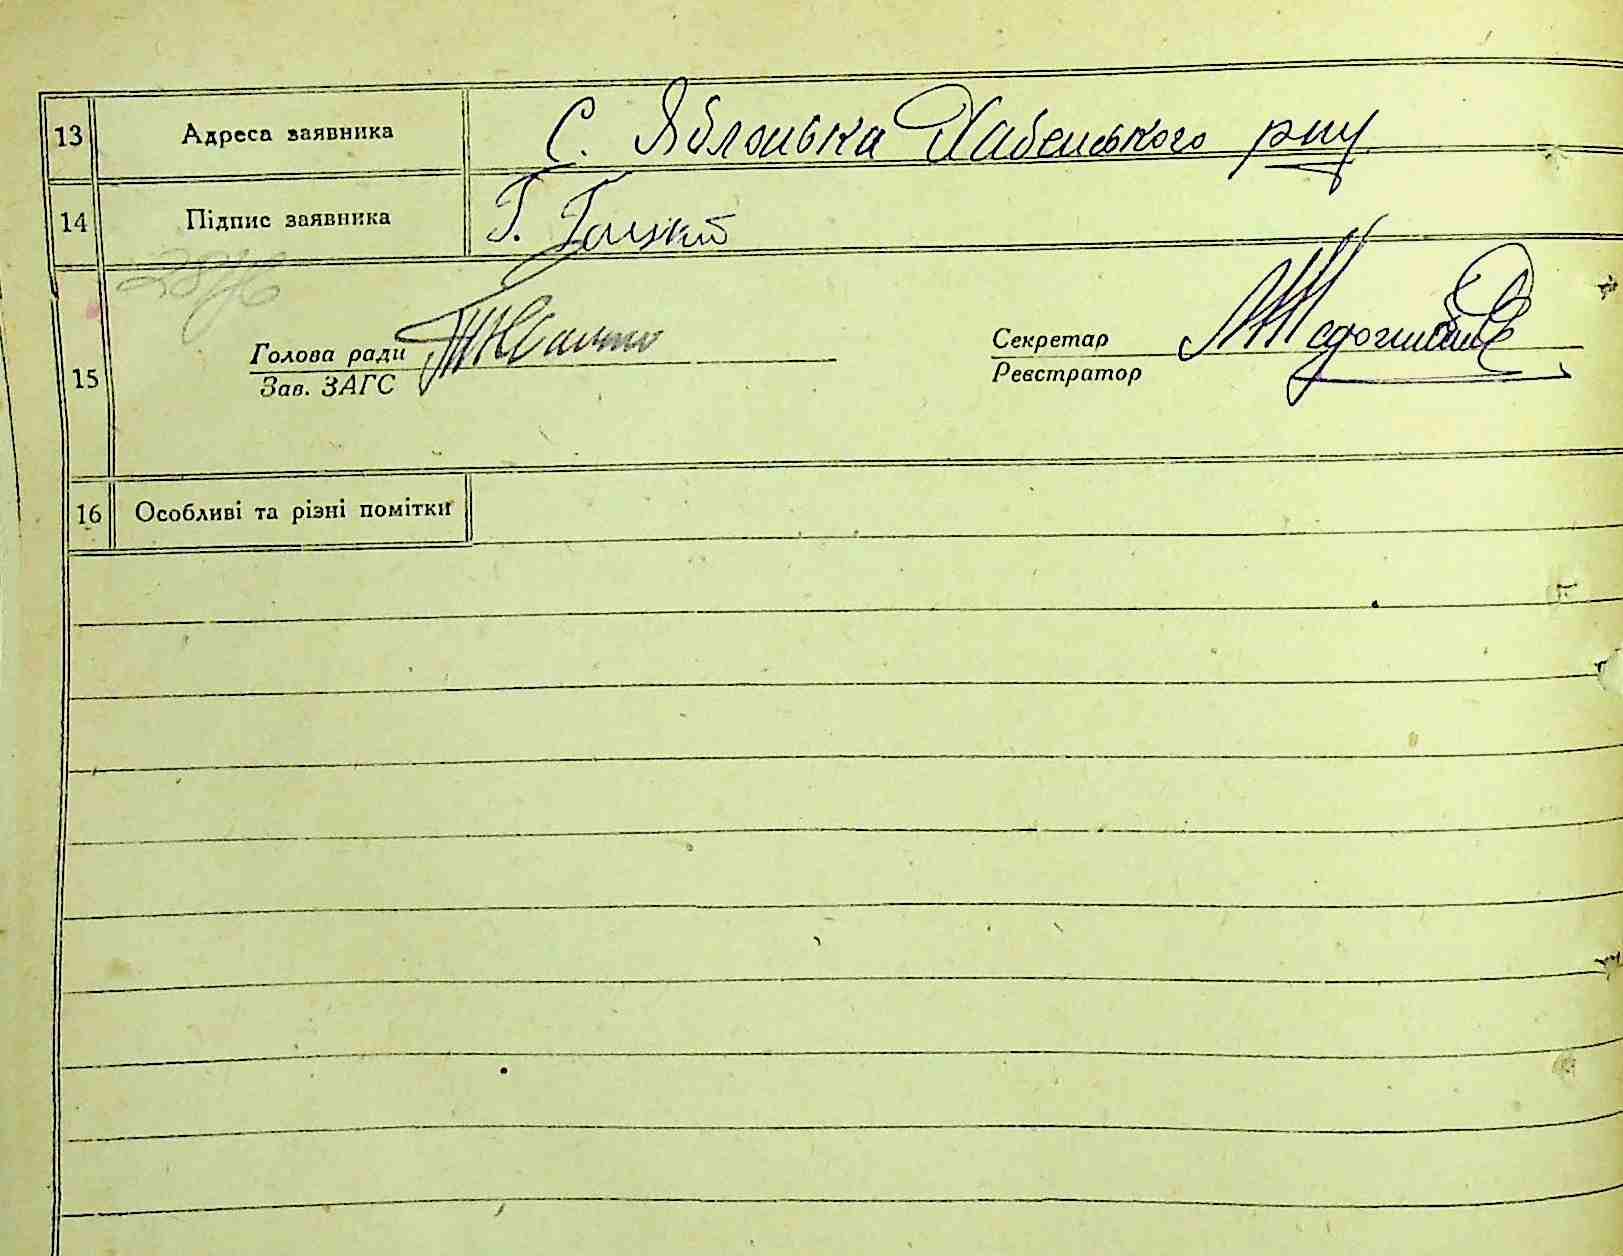 13 Адреса заявника С. Яблонька Хабенського р-ну
14 Підпис заявника Г. Гоцкий
Голова ради Секретар
15 Зав. ЗАГС Реєстратор
16 Особливі та різні помітки